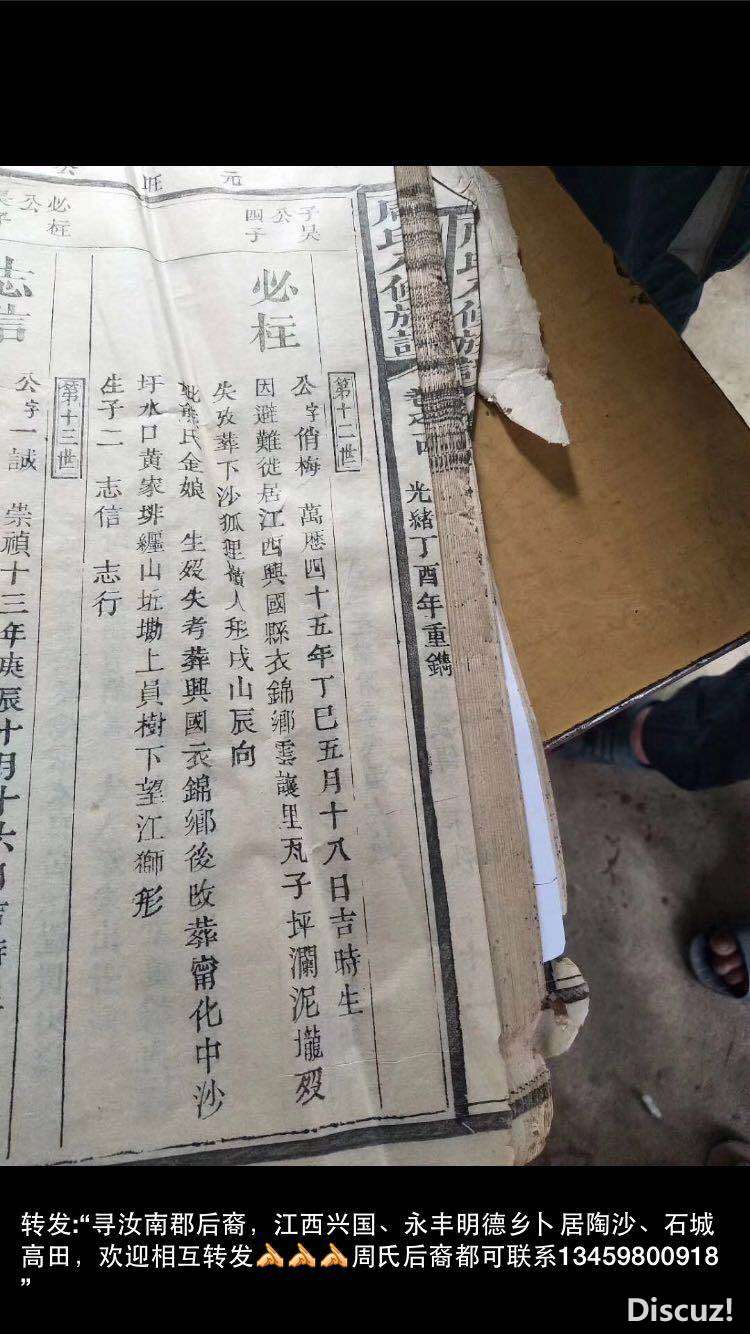 元
周氏八修族譜
光緒丁酉年重鐫
第十二世
子昊
公
四子
必柱
公字俏梅 萬歷四十五年丁巳五月十八日吉時生
因避難徙居江西興國縣衣錦鄉雲讓里瓦子坪瀾泥壠歿
失攷葬下沙狐狸 人形戌山辰向
妣熊氏金娘 生歿失考葬興國衣錦鄉後改葬甯化中沙
圩水口黃家排纙山坵墈上員樹下望江獅形
生子二 志信 志行
第十三世
必柱
公
長子
志信
公字一誠 崇禎十三年庚辰十月十六日吉時
转发:“寻汝南郡后裔，江西兴国、永丰明德乡卜居陶沙、石城
高田，欢迎相互转发✍✍✍周氏后裔都可联系13459800918
”
Discuz!